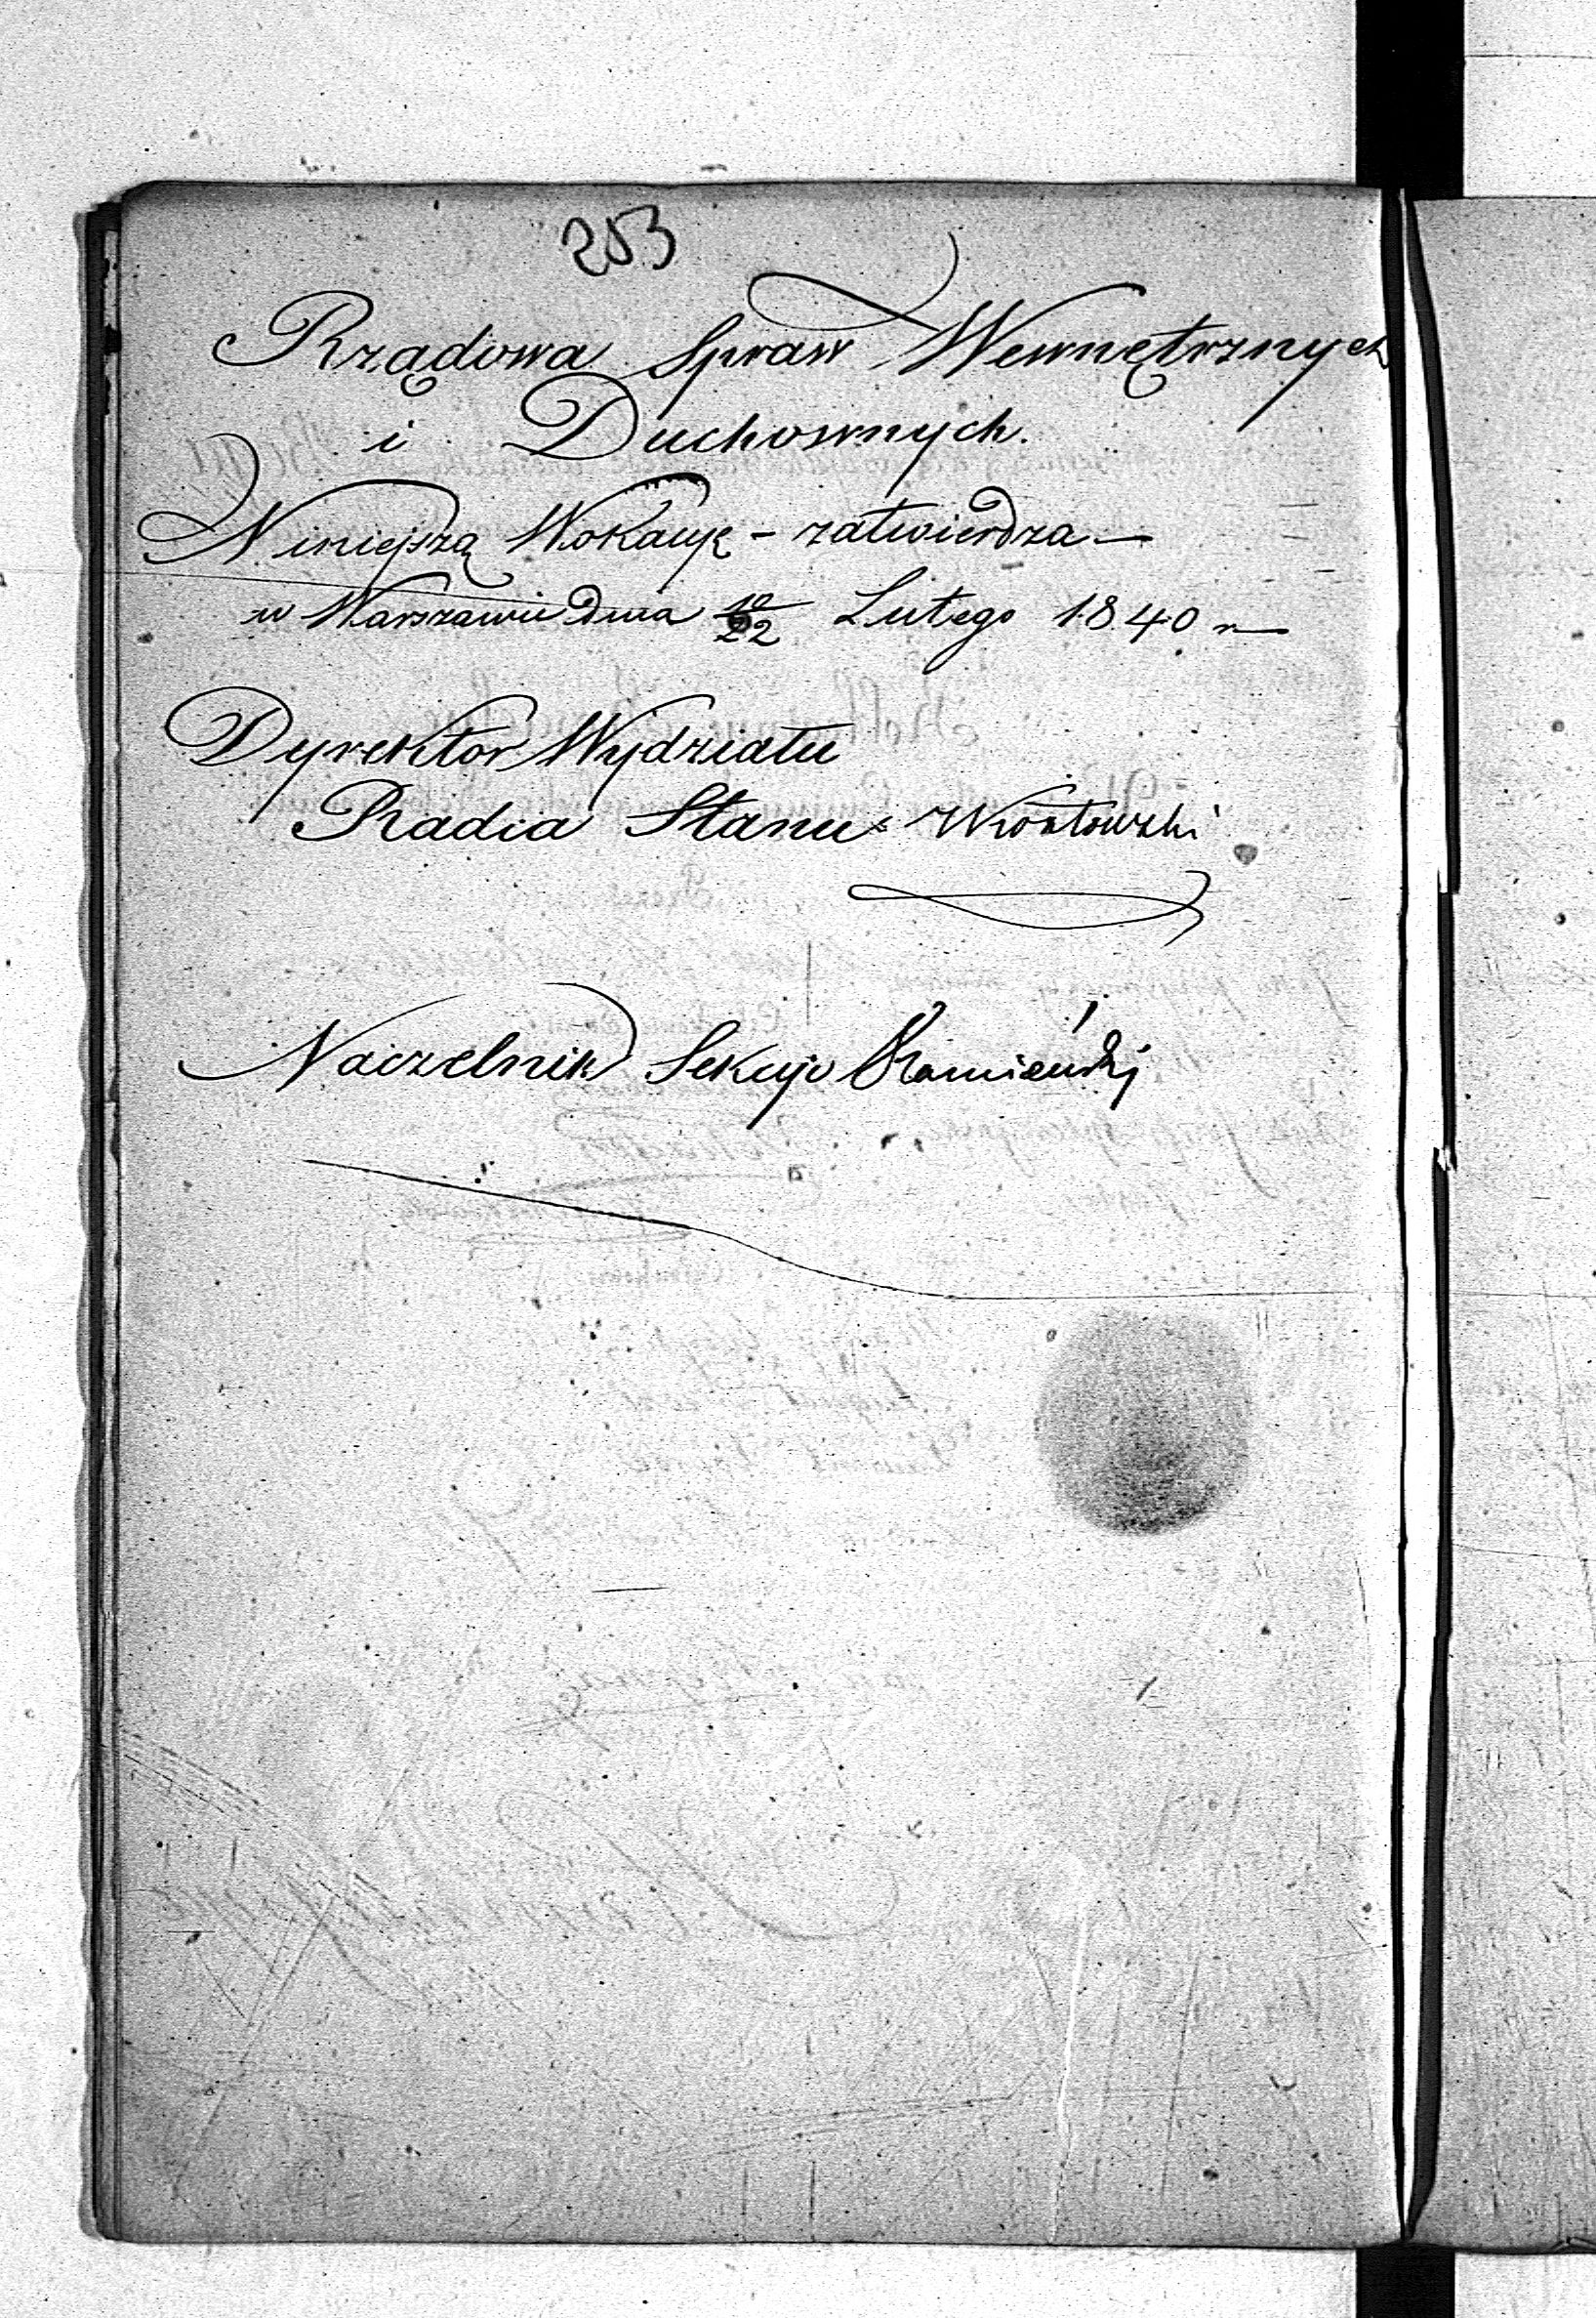 253
Rządowa Spraw Wewnętrznych
i Duchownych.
Niniejszą Wokacyę - zatwierdza —
w Warszawie dnia 10/22 Lutego 1840 r —
Dyrektor Wydziału
Radca Stanu
Naczelnik Sekcyi Kamieński